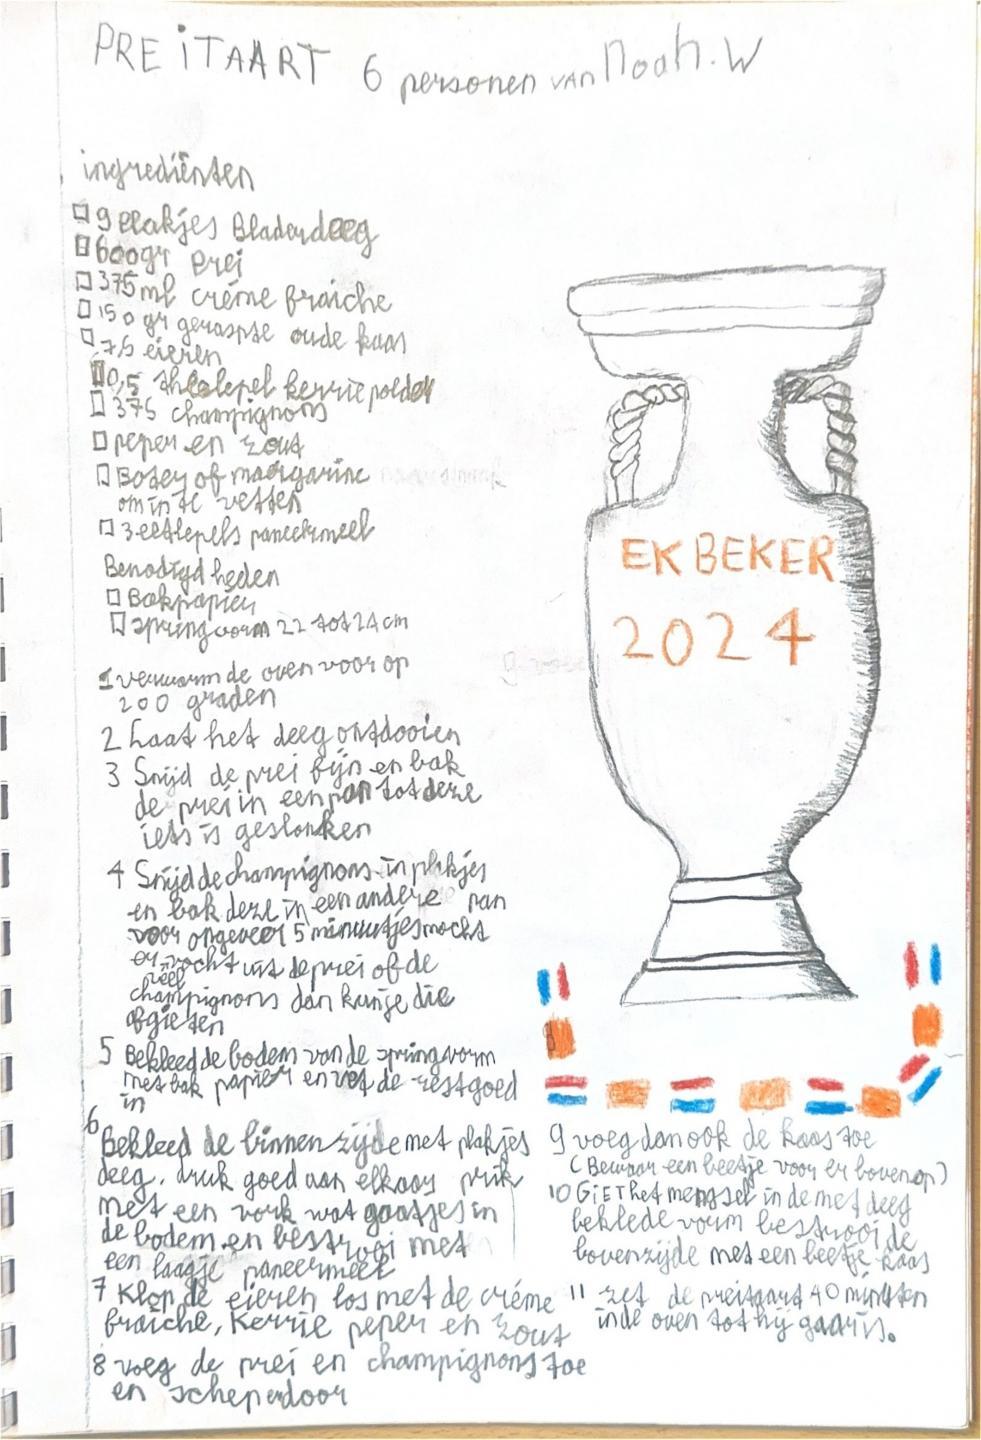 PREITAART 6 personen van Noah.W
ingrediënten
9 plakjes Bladerdeeg
600gr prei
375 ml créme fraiche
150 gr geraspte oude kaas
7,5 eieren
0,5 theelepel kerrie poeder
375 champignons
peper en zout
Botey of margarine
om in te vetten
3 eetlepels paneermeel
Benodigdheden
Bakpapier
springvorm 22 tot 24 cm
1 verwarm de oven voor op
200 graden
2 Laat het deeg ontdooien
3 Snijd de prei fijn en bak
de prei in een pan tot deze
iets is geslonken
4 Snijd de champignons in plakjes
en bak deze in een andere pan
voor ongeveer 5 minuutjes mocht
er veel vocht uit de prei of de
champignons dan kun je die
afgieten
5 Bekleed de bodem van de springvorm
met bak papier en vet de rest goed
in
6 Bekleed de binnenzijde met plakjes
deeg. druk goed aan elkaar prik
met een vork wat gaatjes in
de bodem en bestrooi met
een laagje paneermeel
7 Klop de eieren los met de créme
fraiche, Kerrie peper en zout
8 voeg de prei en champignons toe
en schep erdoor
EK BEKER
2024
9 voeg dan ook de kaas toe
(Bewaar een beetje voor er bovenop)
10 GIET het mengsel in de met deeg
beklede vorm bestrooi de
bovenzijde met een beetje kaas
11 zet de preitaart 40 minuten
in de oven tot hij gaar is.